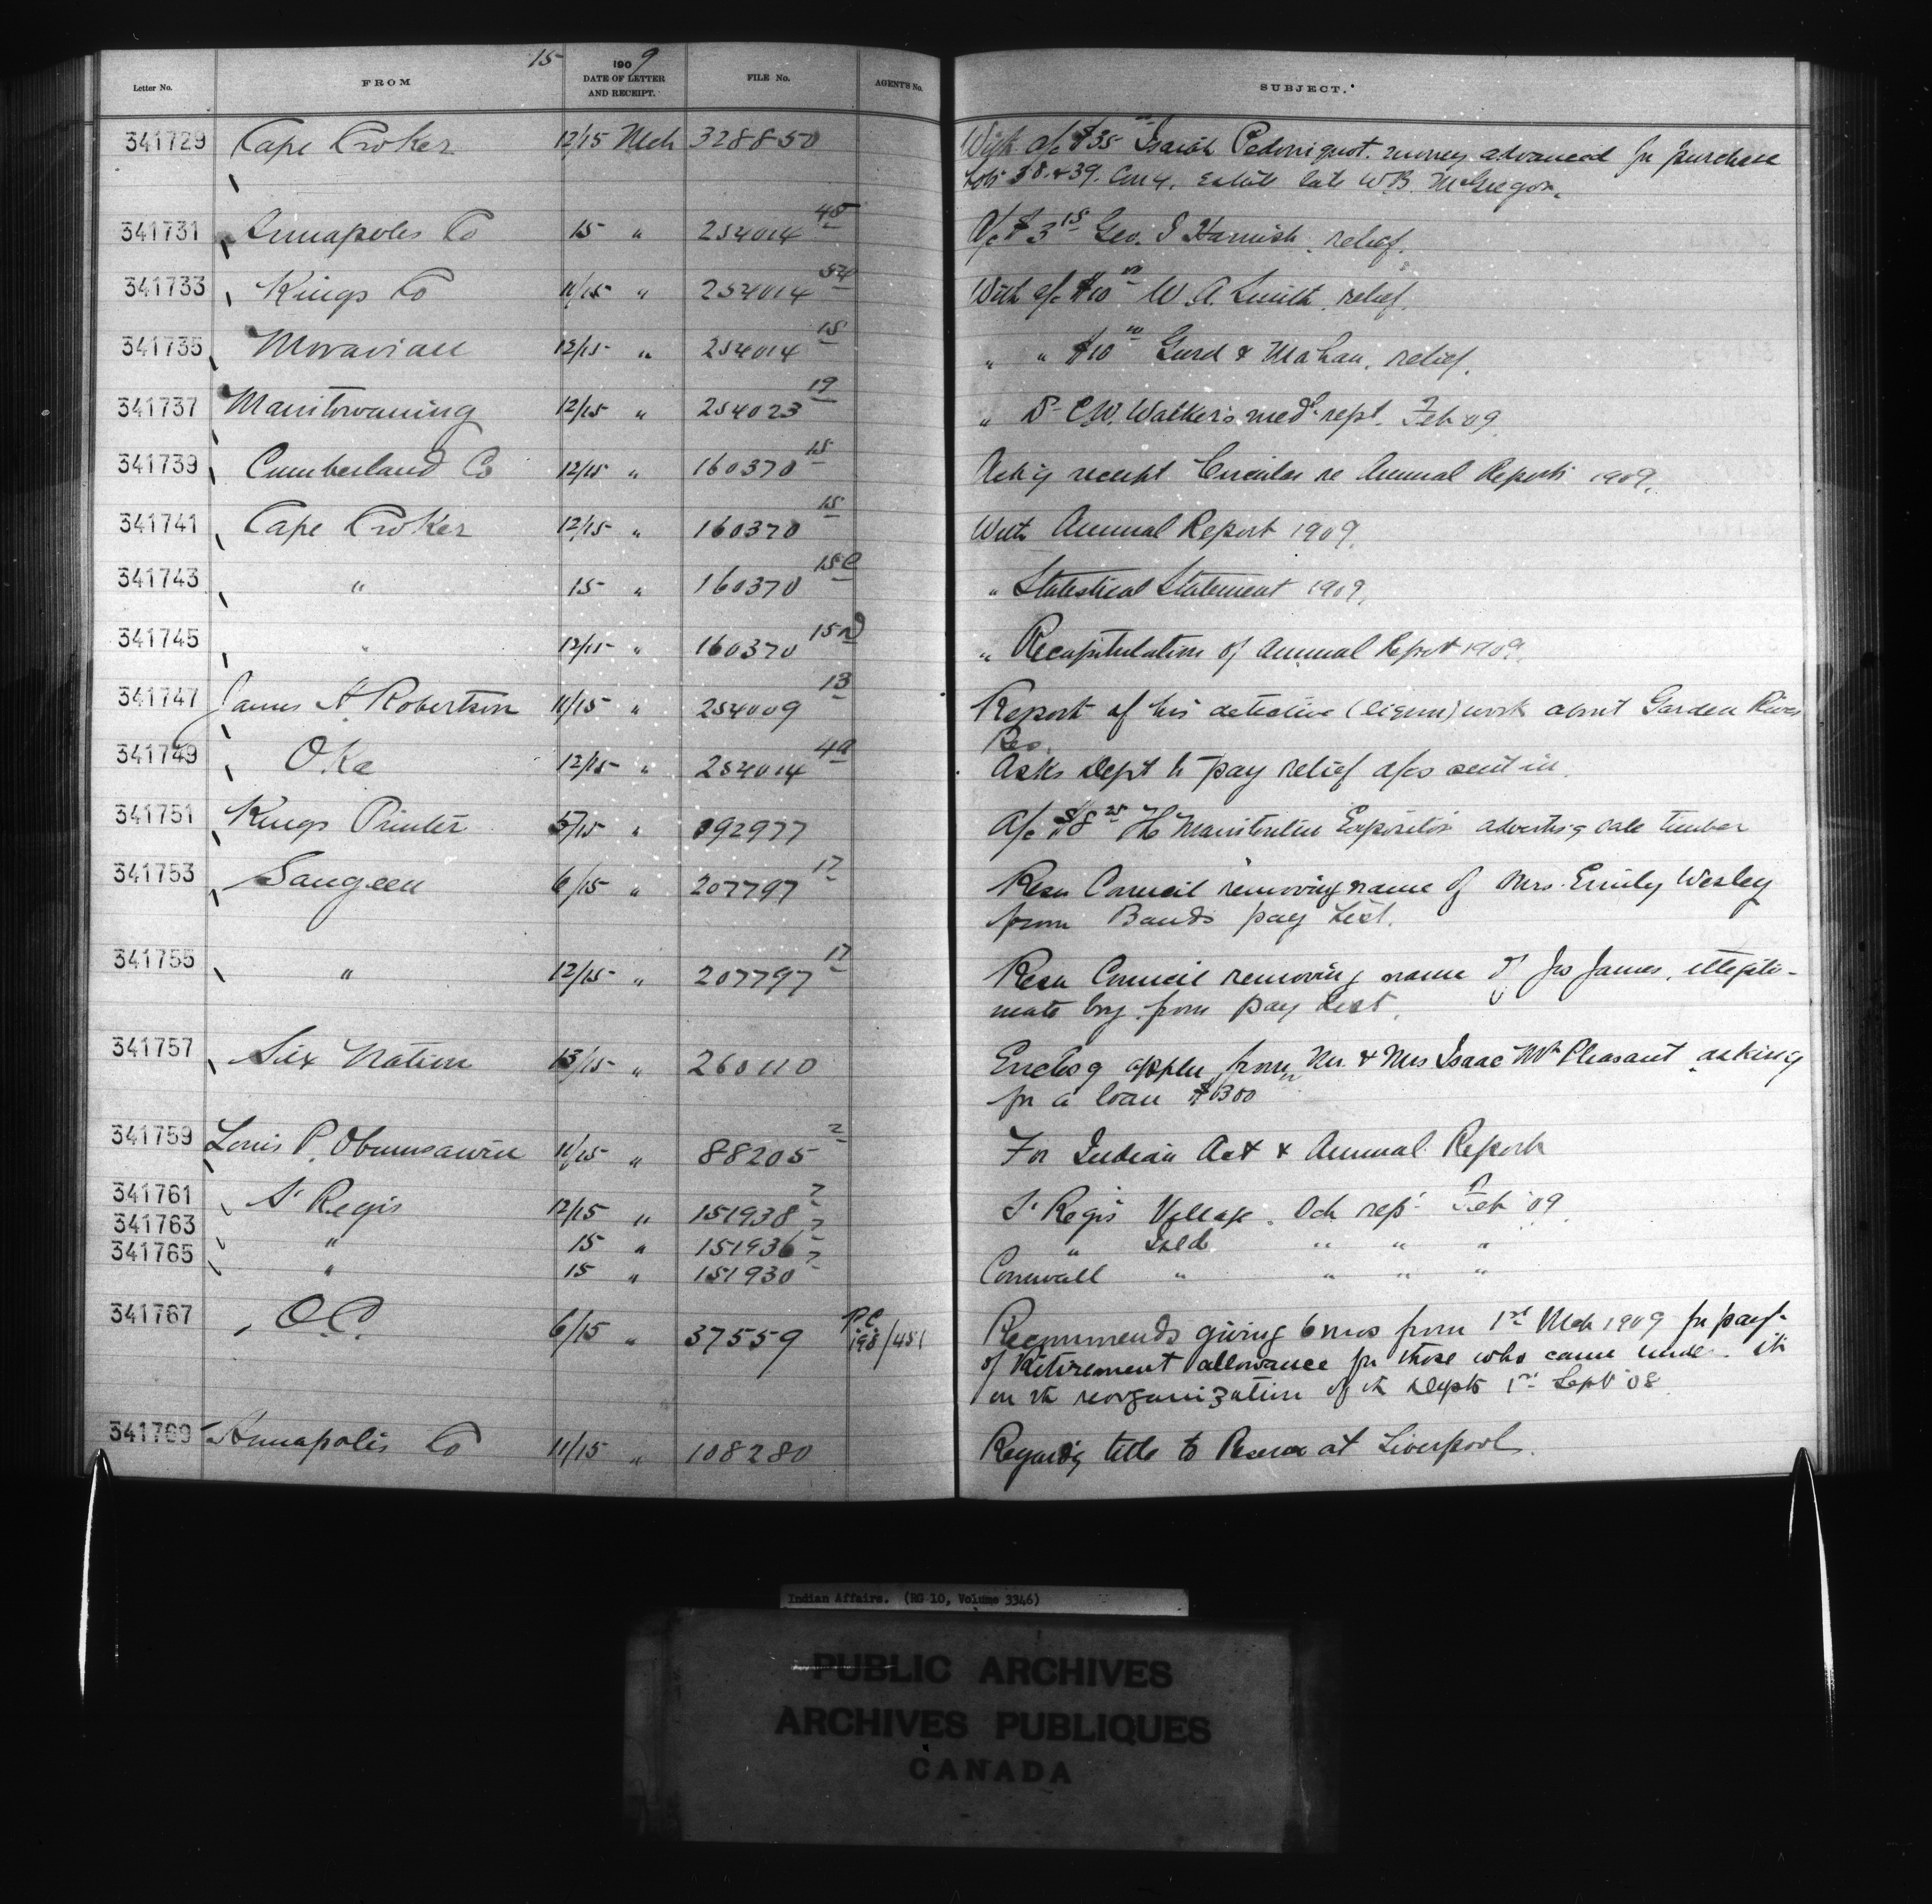 15 1909
Letter No. FROM DATE OF LETTER AND RECEIPT. FILE No. AGENT'S No. SUBJECT.
341729 Cape Croker 12/15 Mch 328850 With a/c $35 00 Isaiah Pedoniquot. money advanced for purchase
Lots 38 & 39. Con 4. Estate late W.B. McGregor.
341731 Annapolis Co 15 " 254014 48 A/c $3 15 Geo. I Harnish relief.
341733 Kings Co 11/15 " 254014 54 With a/c $10 00 W. A. Smith relief.
341735 Moravian 12/15 " 254014 18 " " $10 00 Gurd & Mahan, relief.
341737 Manitowaning 12/15 " 254023 19 " Dr C.W. Walker's med'l rept. Feb '09
341739 Cumberland Co 12/15 " 160370 15 Ack'g receipt Circular re Annual Reports 1909.
341741 Cape Croker 12/15 " 160370 15 With Annual Report 1909.
341743 " 15 " 160370 15C " Statistical Statement 1909.
341745 " 12/15 " 160370 15D " Recapitulation of Annual Report 1909.
341747 James A. Robertson 11/15 " 254009 13 Report of his detective (liquor) work about Garden River
Res.
341749 Oka 12/15 " 254014 4a Asks Dept to pay relief a/cs sent in.
341751 Kings Printer 5/15 " 192977 A/c $8 25 The Manitoulin Expositor advertis'g sale timber
341753 Saugeen 6/15 " 207797 17 Resn Council removing name of Mrs. Emily Wesley
from Bands pay List.
341755 " 12/15 " 207797 17 Resn Council removing name of Jno James, illegiti-
mate boy from pay List.
341757 Six Nation 13/15 " 260110 Enclos'g appln from Mr. & Mrs Isaac Mt Pleasant asking
for a loan $300
341759 Louis P. Obumsawin 11/15 " 88205 2 For Indian Act & Annual Report
341761 St Regis 12/15 " 151938 2 St Regis Village. Sch rep't Feb '09
341763 " 15 " 151936 2 " Isld " " "
341765 " 15 " 151930 2 Cornwall " " " "
341767 O.C. 6/15 " 37559 P.C. 198/451 Recommends giving 6 mos from 1st Mch 1909 for pay't
of Retirement allowance for those who came under it
on the reorganization of the Depts 1st Sept '08
341769 Annapolis Co 11/15 " 108280 Regard'g title to Reserve at Liverpool.
Indian Affairs. (RG 10, Volume 3346)
PUBLIC ARCHIVES
ARCHIVES PUBLIQUES
CANADA